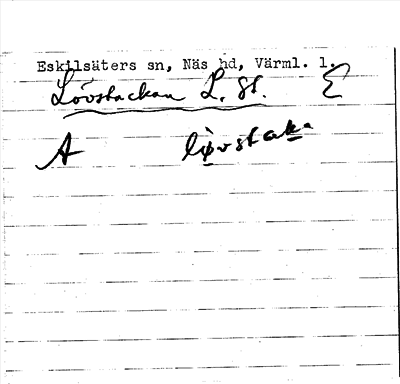 Eskilsäters sn, Näs hd, Värml. l.
Lövstackan L. St. E
A lövstaka